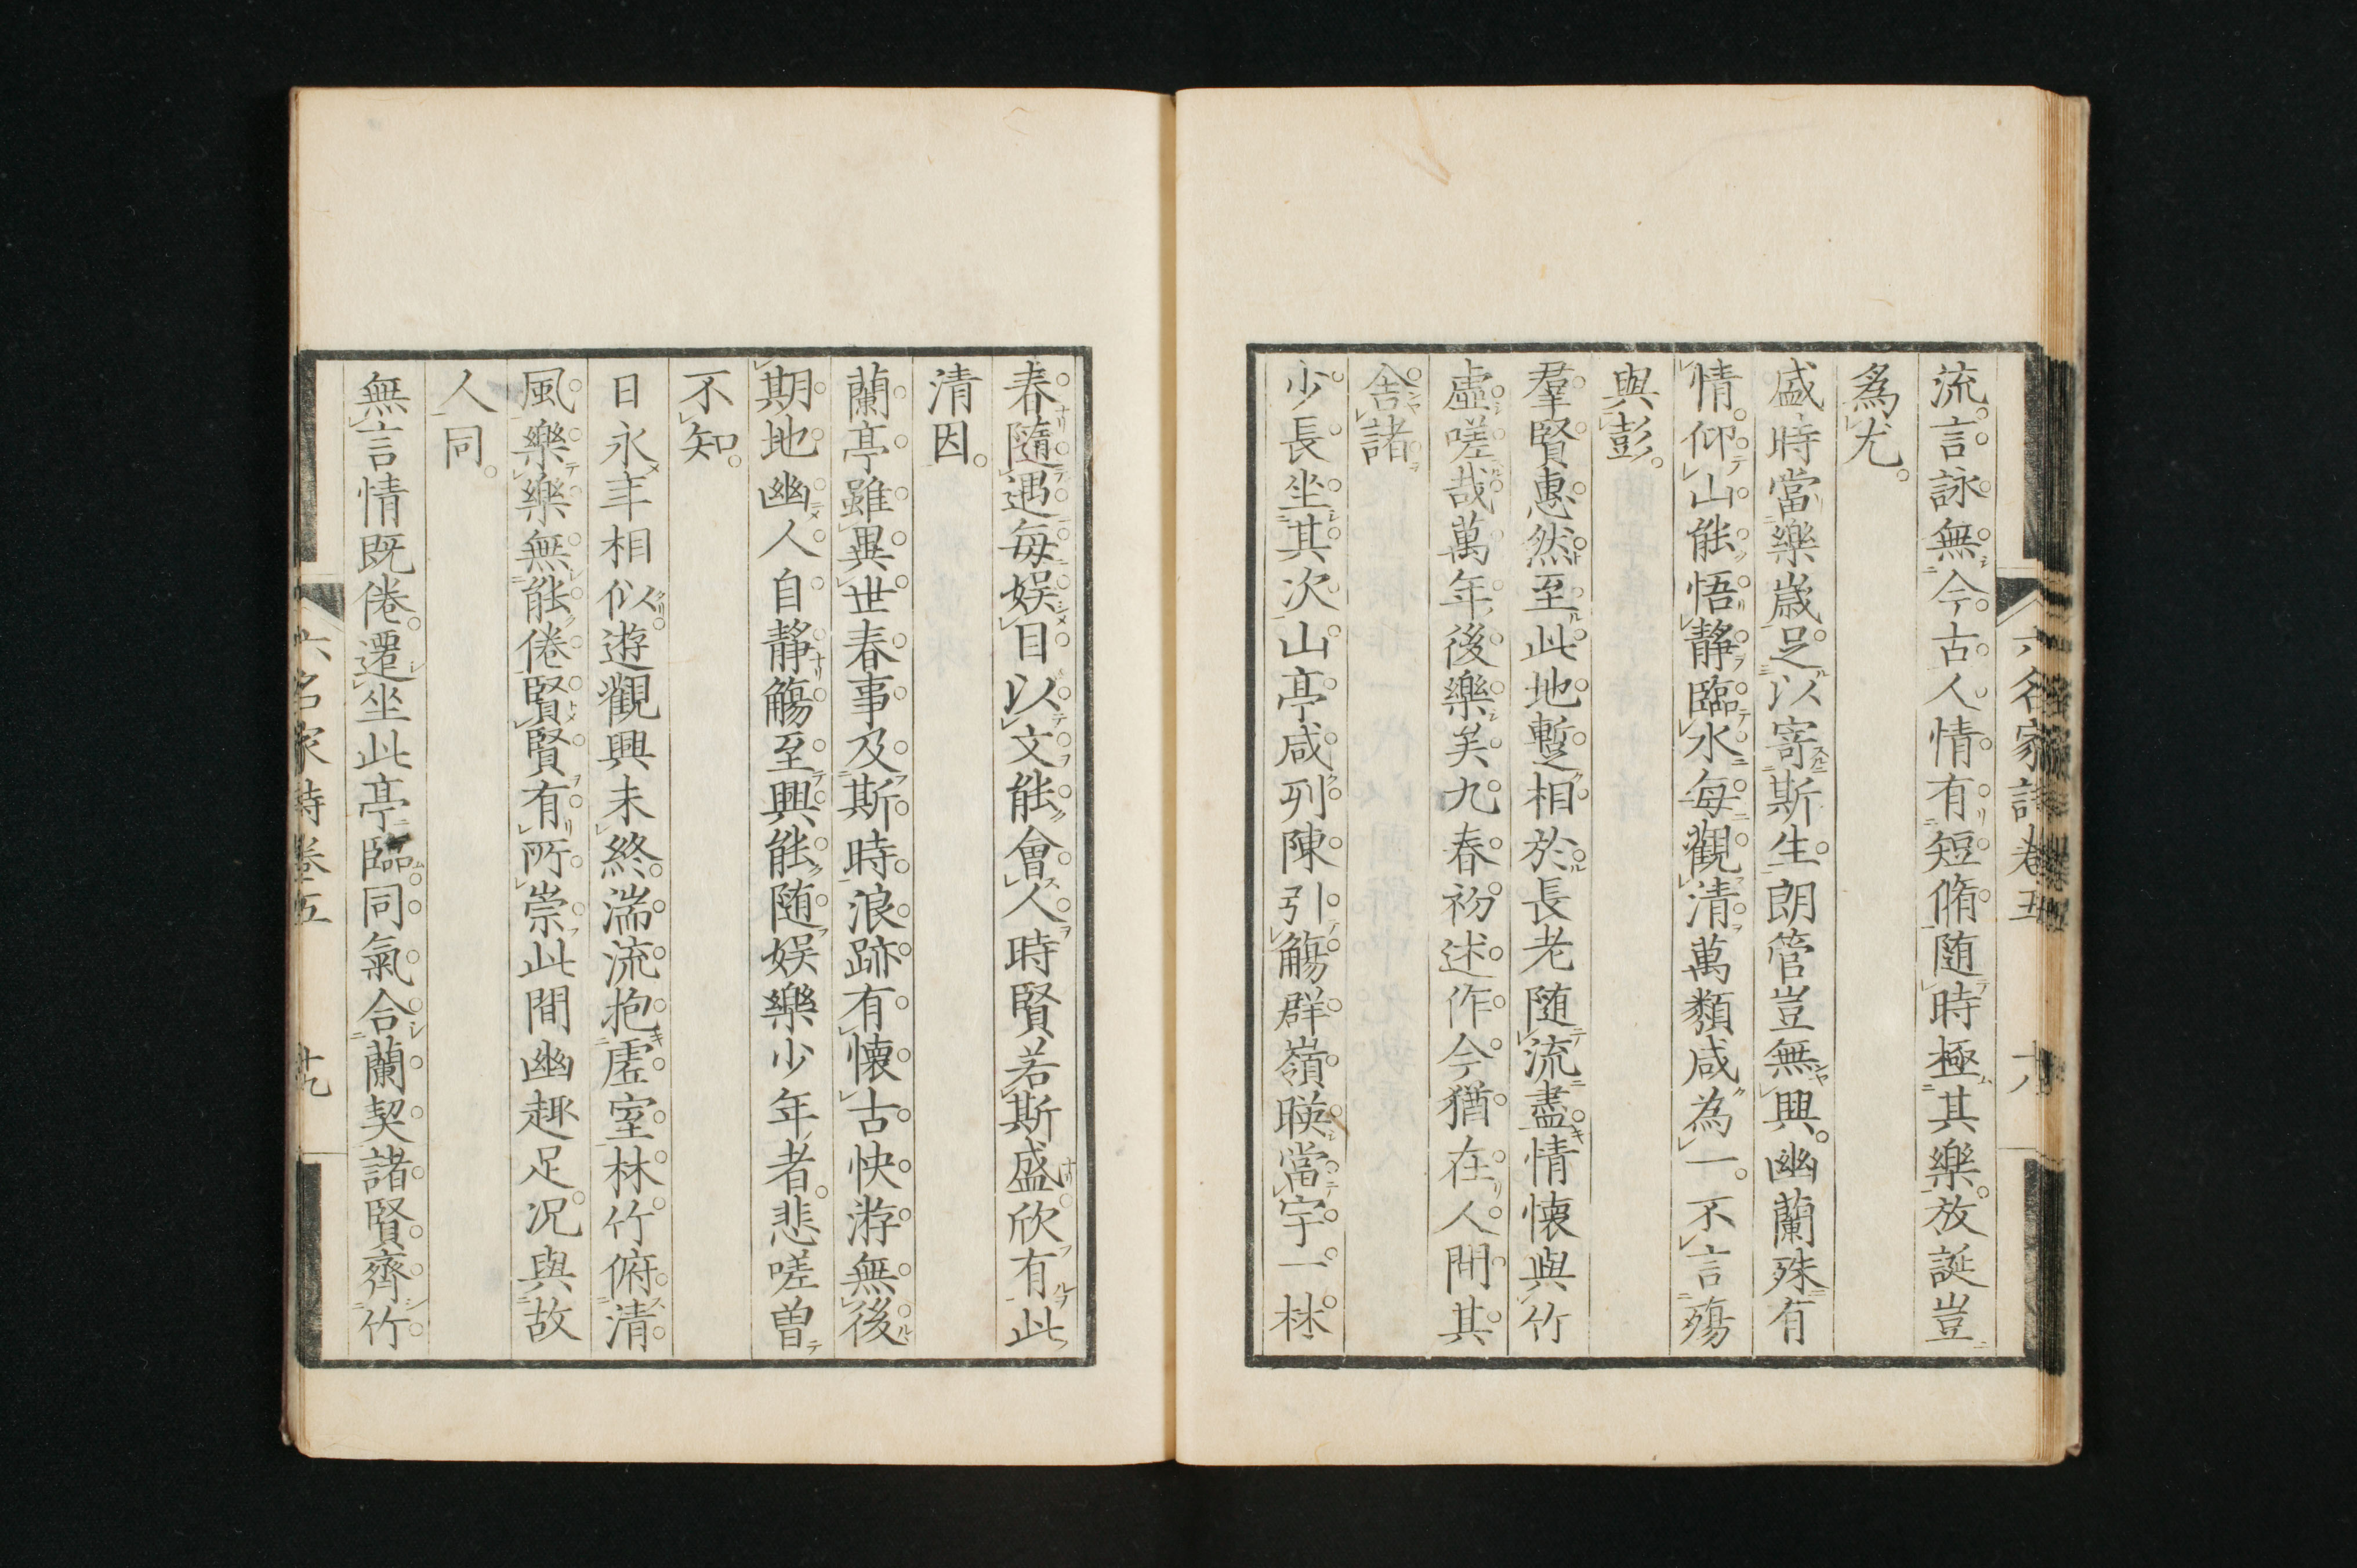 流言詠無今古人情有短脩随時極其樂放誕豈
為尤
盛時當樂歳足以寄斯生朗管豈無興幽蘭殊有
情仰山能悟靜臨水每觀清萬類咸為一不言殤
與彭
羣賢惠然至此地蹔相於長老随流盡情懐與竹
虚嗟哉萬年後樂矣九春初述作今猶在人間其
舍諸
少長坐其次山亭咸列陳引觴群嶺暎當宇一林
春隨遇每娯目以文能會人時賢若斯盛欣有此
清因
蘭亭雖異世春事及斯時浪跡有懐古快游無後
期地幽人自靜觴至興能随娯樂少年者悲嗟曽
不知
日永年相似遊觀興未終湍流抱虚室林竹俯清
風樂樂無能倦賢賢有所崇此間幽趣足况與故
人同
無言情既倦遷坐此亭臨同氣合蘭契諸賢齊竹
六名家詩卷五
六名家詩卷五 十九